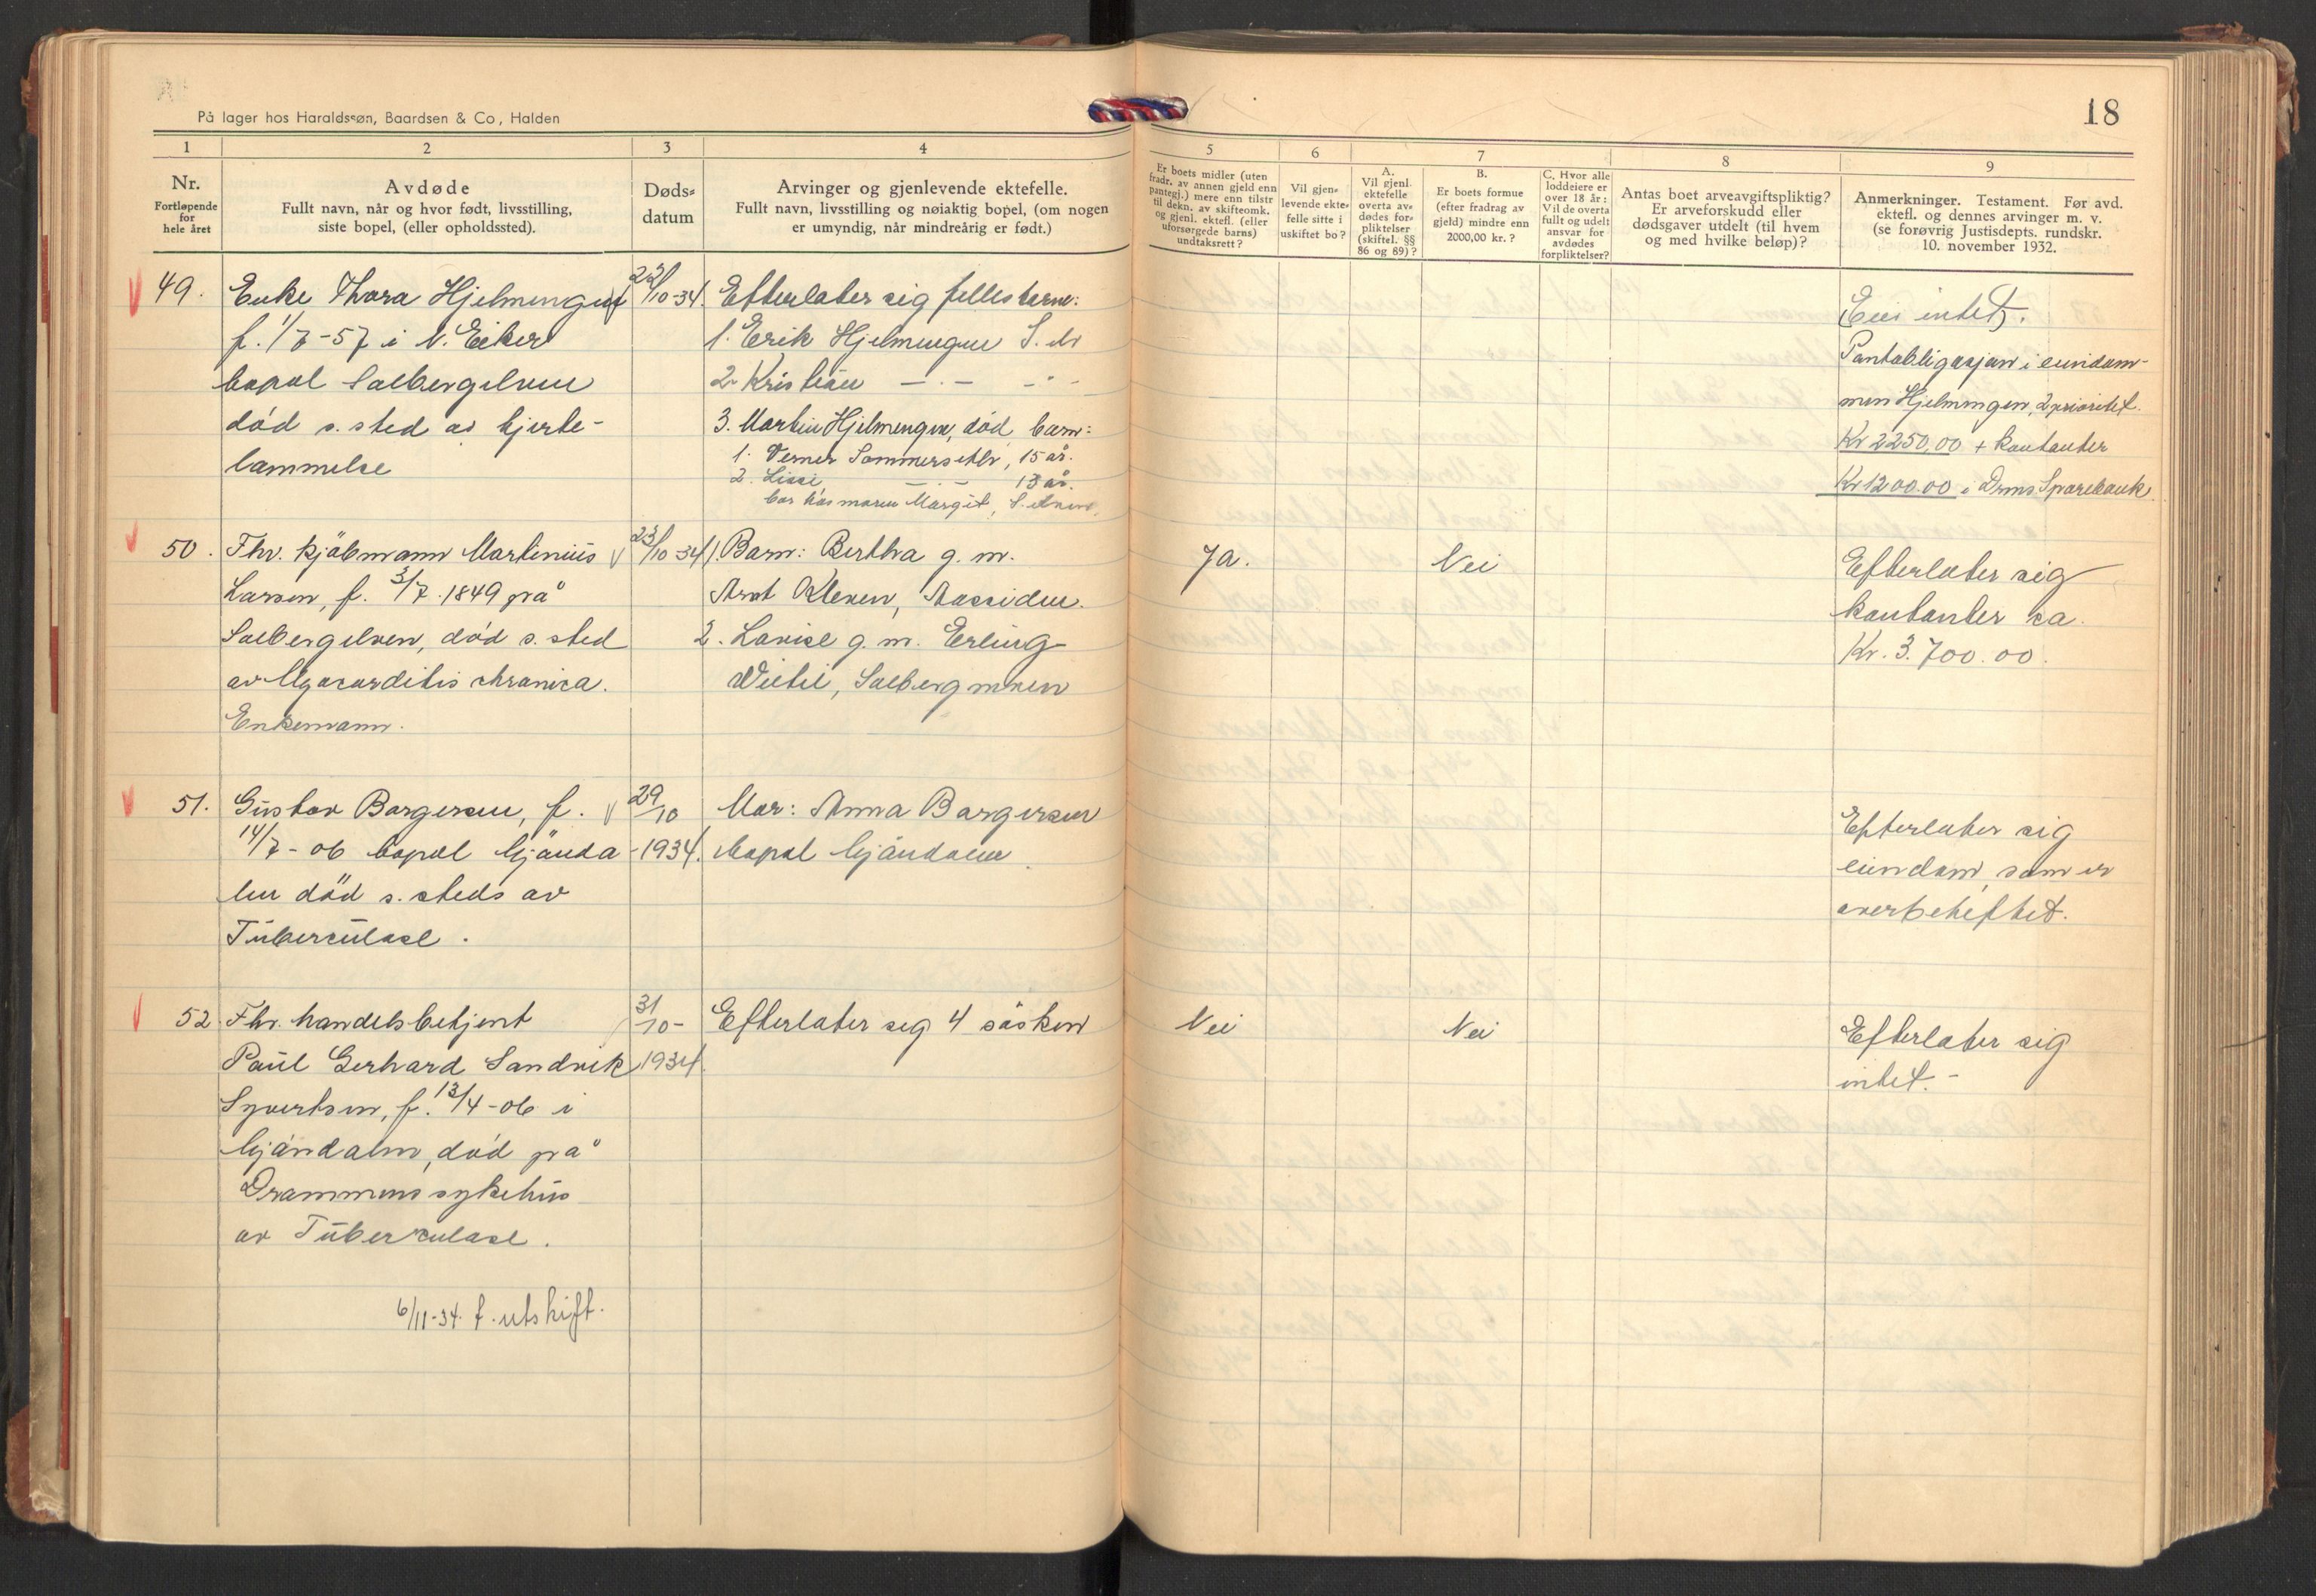 På lager hos Haraldssøn, Baardsen & Co, Halden
1 2 3 4
Nr.
Fortløpende
for
hele året
Avdøde
Fullt navn, når og hvor født, livsstilling,
siste bopel, (eller opholdssted).
Døds-
datum
Arvinger og gjenlevende ektefelle.
Fullt navn, livsstilling og nøiaktig bopel, (om nogen
er umyndig, når mindreårig er født.)
49.
Enke Thora Hjelmengen
f. 1/7-57 i N. Eiker
bopel Solbergelven
död s. sted av hjerte-
lammelse
22/10-34.
Efterlater sig felles barn:
1. Erik Hjelmengen S. elv
2. Kristian —.— -"-
3. Martin Hjelmengen, död, barn:
1. Verner Sommersetlv, 15 år.
2. Lissi —.— 13 år.
bor hos moren Margit, S. elven.
50.
Fhv. kjöbmann Martinius
Larsen, f. 3/7. 1849 på
Solbergelven, död s. sted
av Myocarditis chronica.
Enkemann.
23/10-34
1. Barn: Bertha g. m.
Arnt Kleven, Aassiden.
2. Lovise g. m. Erling
Wietil, Solbergmoen
51.
Gustav Borgersen, f.
14/7-06 bopel Mjönda
len död s. steds av
Tuberculose.
29/10
-1934.
Mor: Anna Borgersen
bopel Mjöndalen
52
Fhv. handelsbetjent
Paul Gerhard Sandvik
Syvertsen, f. 13/4-06 i
Mjöndalen, död på
Drammens sykehus
av Tuberculose.
31/10-
1934.
Efterlater seg 4 sösken
6/11-34. f. utskift.
18
5 6 7 8 9
Er boets midler (uten
fradr. av annen gjeld enn
pantegj.) mere enn tilstr
til dekn. av skifteomk.
og gjenl. ektefl. (eller
uforsørgede barns)
undtaksrett?
Vil gjen-
levende ekte-
felle sitte i
uskiftet bo?
A.
Vil gjenl.
ektefelle
overta av-
dødes for-
pliktelser
(skiftel. §§
86 og 89)?
B.
Er boets formue
(efter fradrag av
gjeld) mindre enn
2000,00 kr.?
C. Hvor alle
loddeiere er
over 18 år:
Vil de overta
fullt og udelt
ansvar for
avdødes
forpliktelser?
Antas boet arveavgiftspliktig?
Er arveforskudd eller
dødsgaver utdelt (til hvem
og med hvilke beløp)?
Anmerkninger. Testament. Før avd.
ektefl. og dennes arvinger m. v.
(se forøvrig Justisdepts. rundskr.
10. november 1932.
(Eier intet).
Pantobligasjon i eiendom-
men Hjelmengen, 2 prioritet.
Kr 2250,00 + kontanter
Kr 1200.00 i Drms Sparebank
Ja.
Nei
Efterlater sig
kontanter ca.
Kr. 3.700.00.
Efterlater sig
eiendom, som er
overbeheftet.
Nei
Nei
Efterlater sig
intet.-